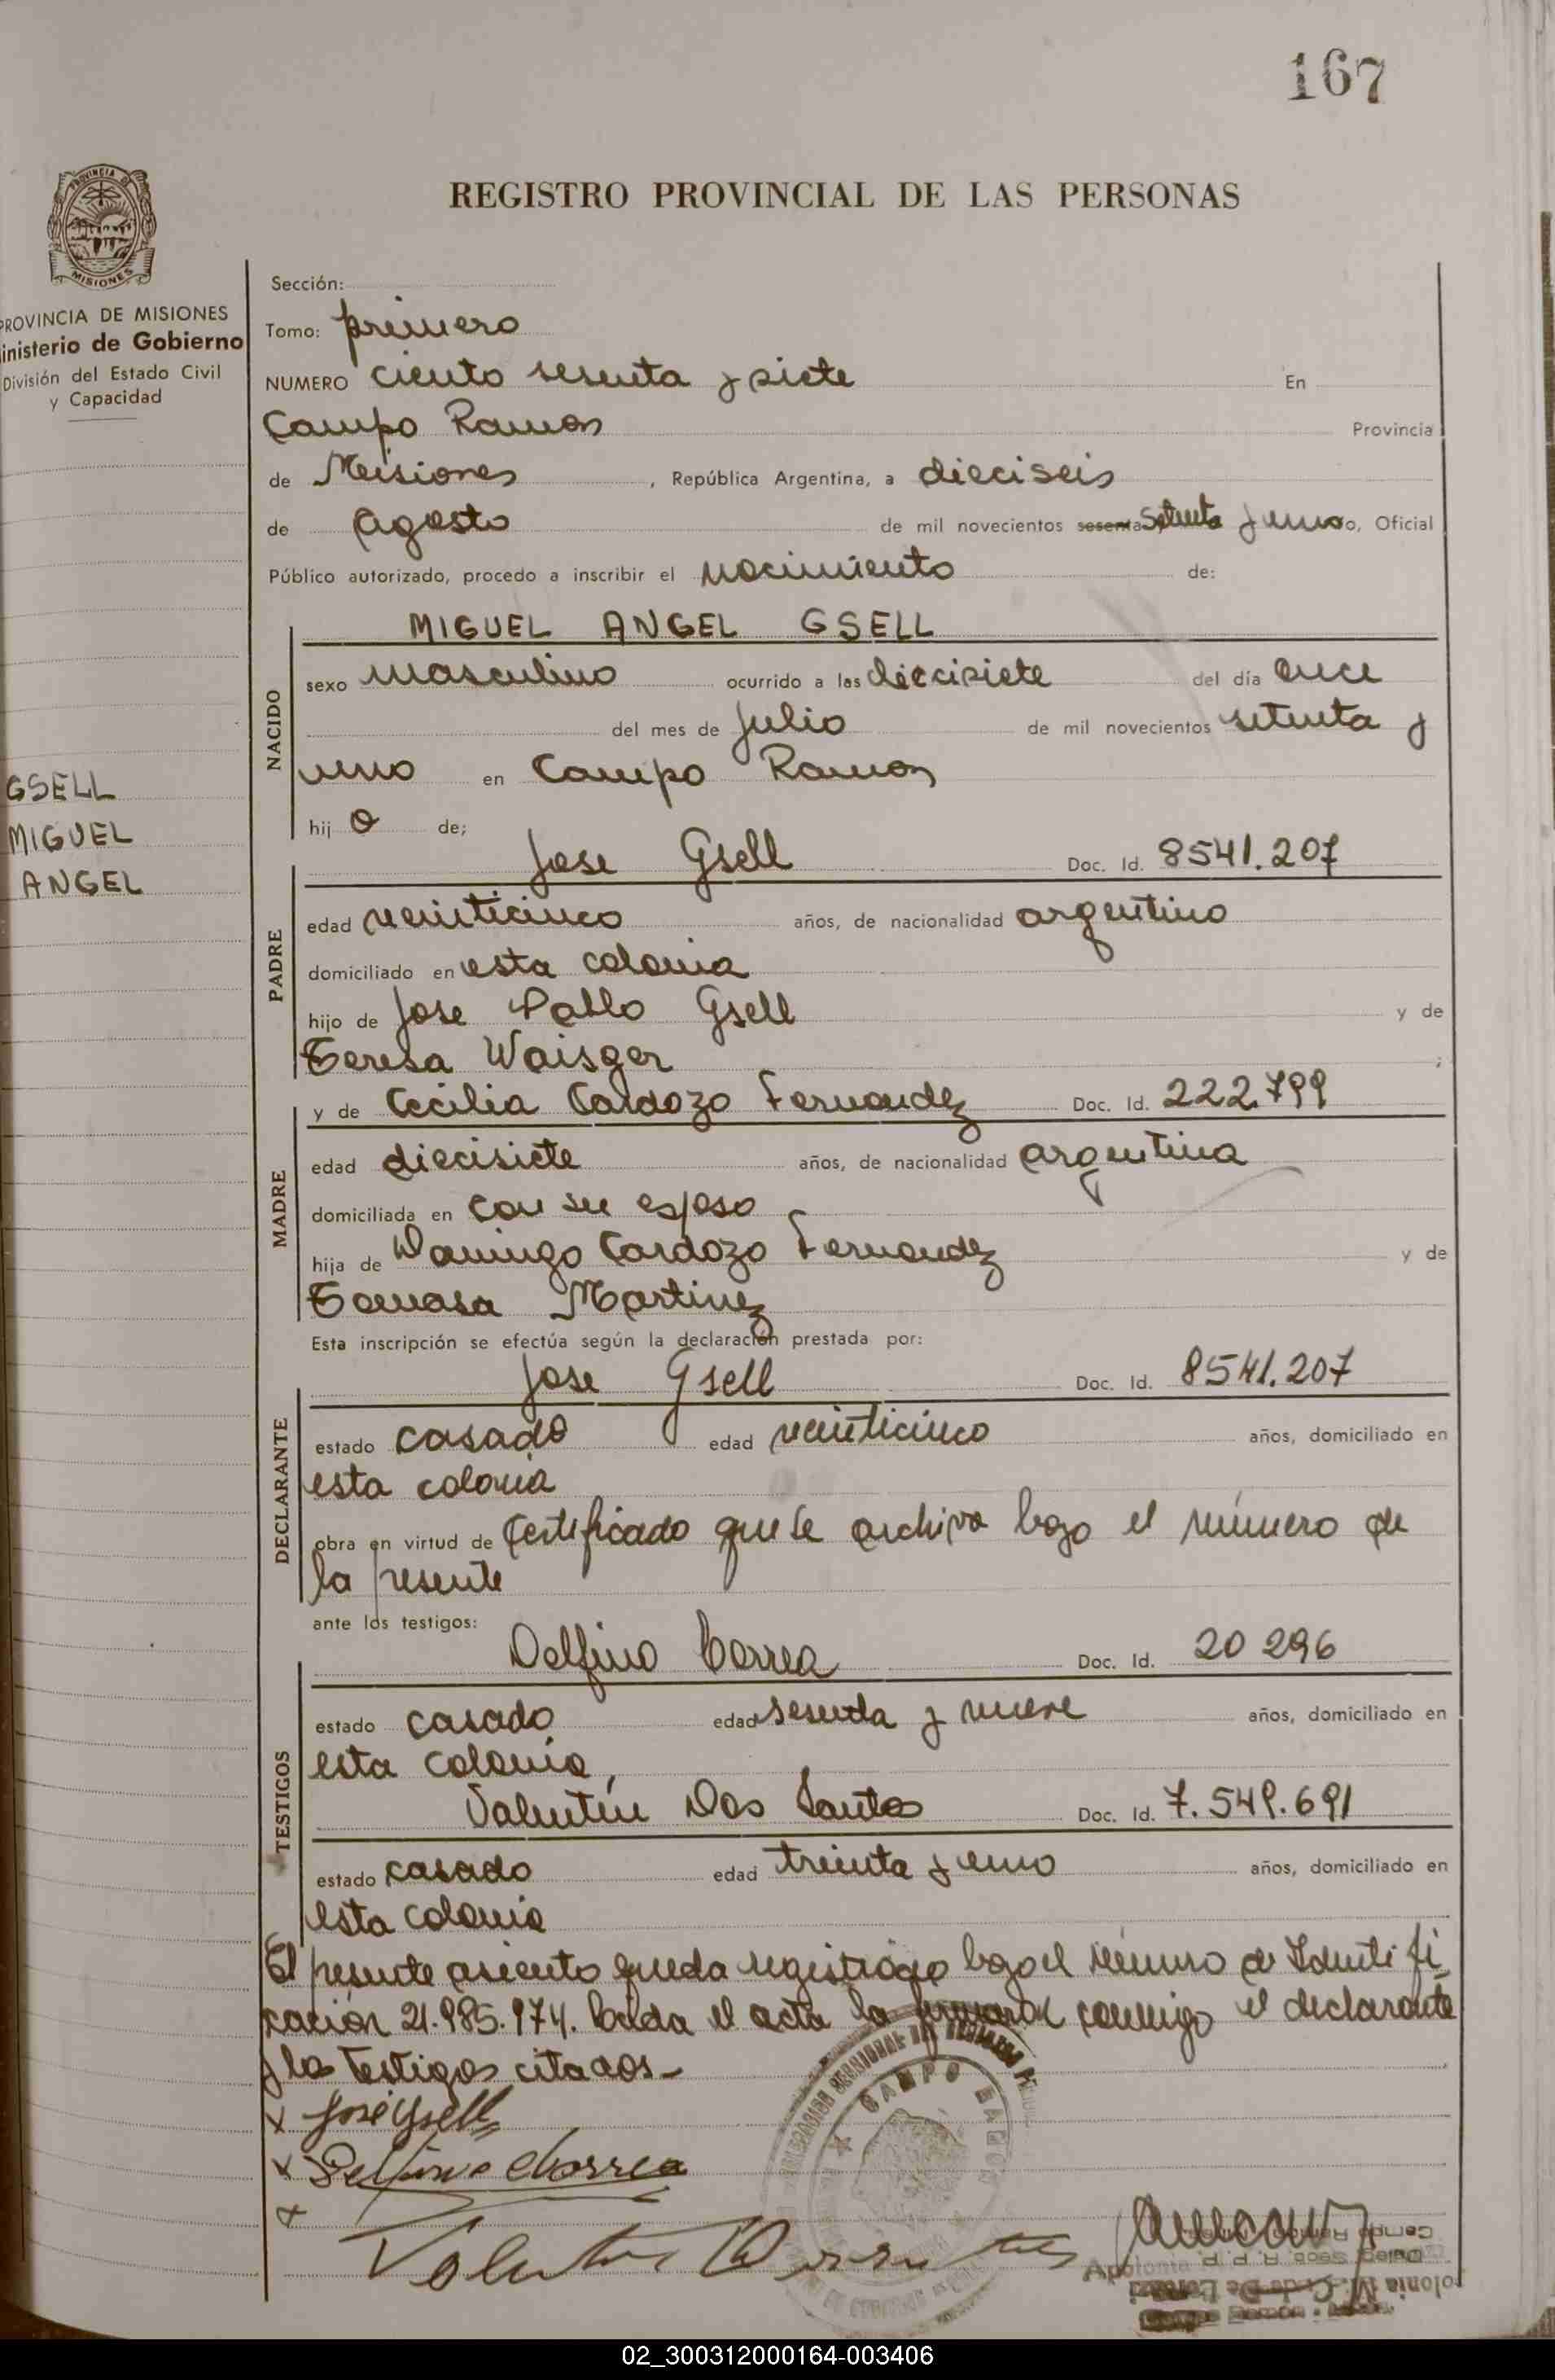 167
PROVINCIA DE
MISIONES
REGISTRO PROVINCIAL DE LAS PERSONAS
PROVINCIA DE MISIONES
inisterio de Gobierno
División del Estado Civil
y Capacidad
GSELL
MIGUEL
ANGEL
Sección:
Tomo: primero
NUMERO ciento sesenta y siete En
Campo Ramon Provincia
de Misiones , República Argentina, a dieciseis
de agosto de mil novecientos sesenta Setenta y uno, Oficial
Público autorizado, procedo a inscribir el nacimiento de:
NACIDO
MIGUEL ANGEL GSELL
sexo masculino ocurrido a las diecisiete del día once
del mes de Julio de mil novecientos setenta y
uno en Campo Ramon
hij o de;
PADRE
Jose Gsell Doc. Id. 8541.207
edad veinticinco años, de nacionalidad argentino
domiciliado en esta colonia
hijo de Jose Pablo Gsell y de
Teresa Waisger ;
MADRE
y de Cecilia Cardozo Fernandez Doc. Id. 222.799
edad diecisiete años, de nacionalidad argentina
domiciliada en con su esposo
hija de Domingo Cardozo Fernandez y de
Tomasa Martinez
Esta inscripción se efectúa según la declaración prestada por:
DECLARANTE
Jose Gsell Doc. Id. 8541.207
estado casado edad veinticinco años, domiciliado en
esta colonia
obra en virtud de Certificado que se archiva bajo el número de
la presente
ante los testigos:
TESTIGOS
Delfino Correa Doc. Id. 20 296
estado casado edad sesenta y nueve años, domiciliado en
esta colonia,
Valentin Dos Santos Doc. Id. 7.549.691
estado casado edad treinta y uno años, domiciliado en
esta colonia
El presente asiento queda registrado bajo el número de Identifi
cación 21.985.974. Leida el acta la conmigo el declarante
y los testigos citados.-
x José Gsell
x Delfino Correa
x
CAMPO RAMON
02_300312000164-003406